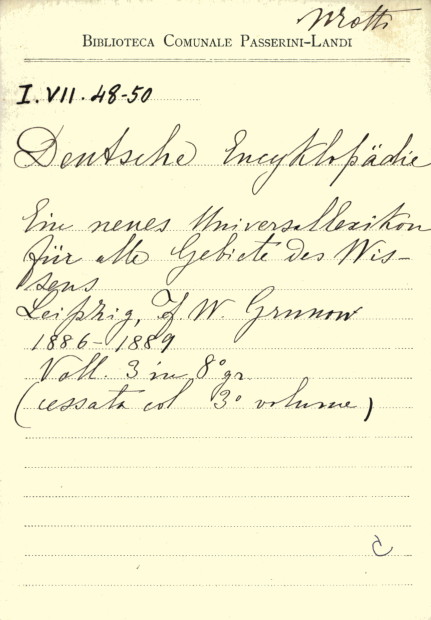 BIBLIOTECA COMUNALE PASSERINI-LANDI
I. VII. 48-50
Deutsche Encyklopädie
Ein neues Universallexikon
für alle Gebiete des Wis-
sens
Leipzig, F. W. Grunow
1886-1889
Voll. 3 in 8° gr.
(cessata col 3° volume)